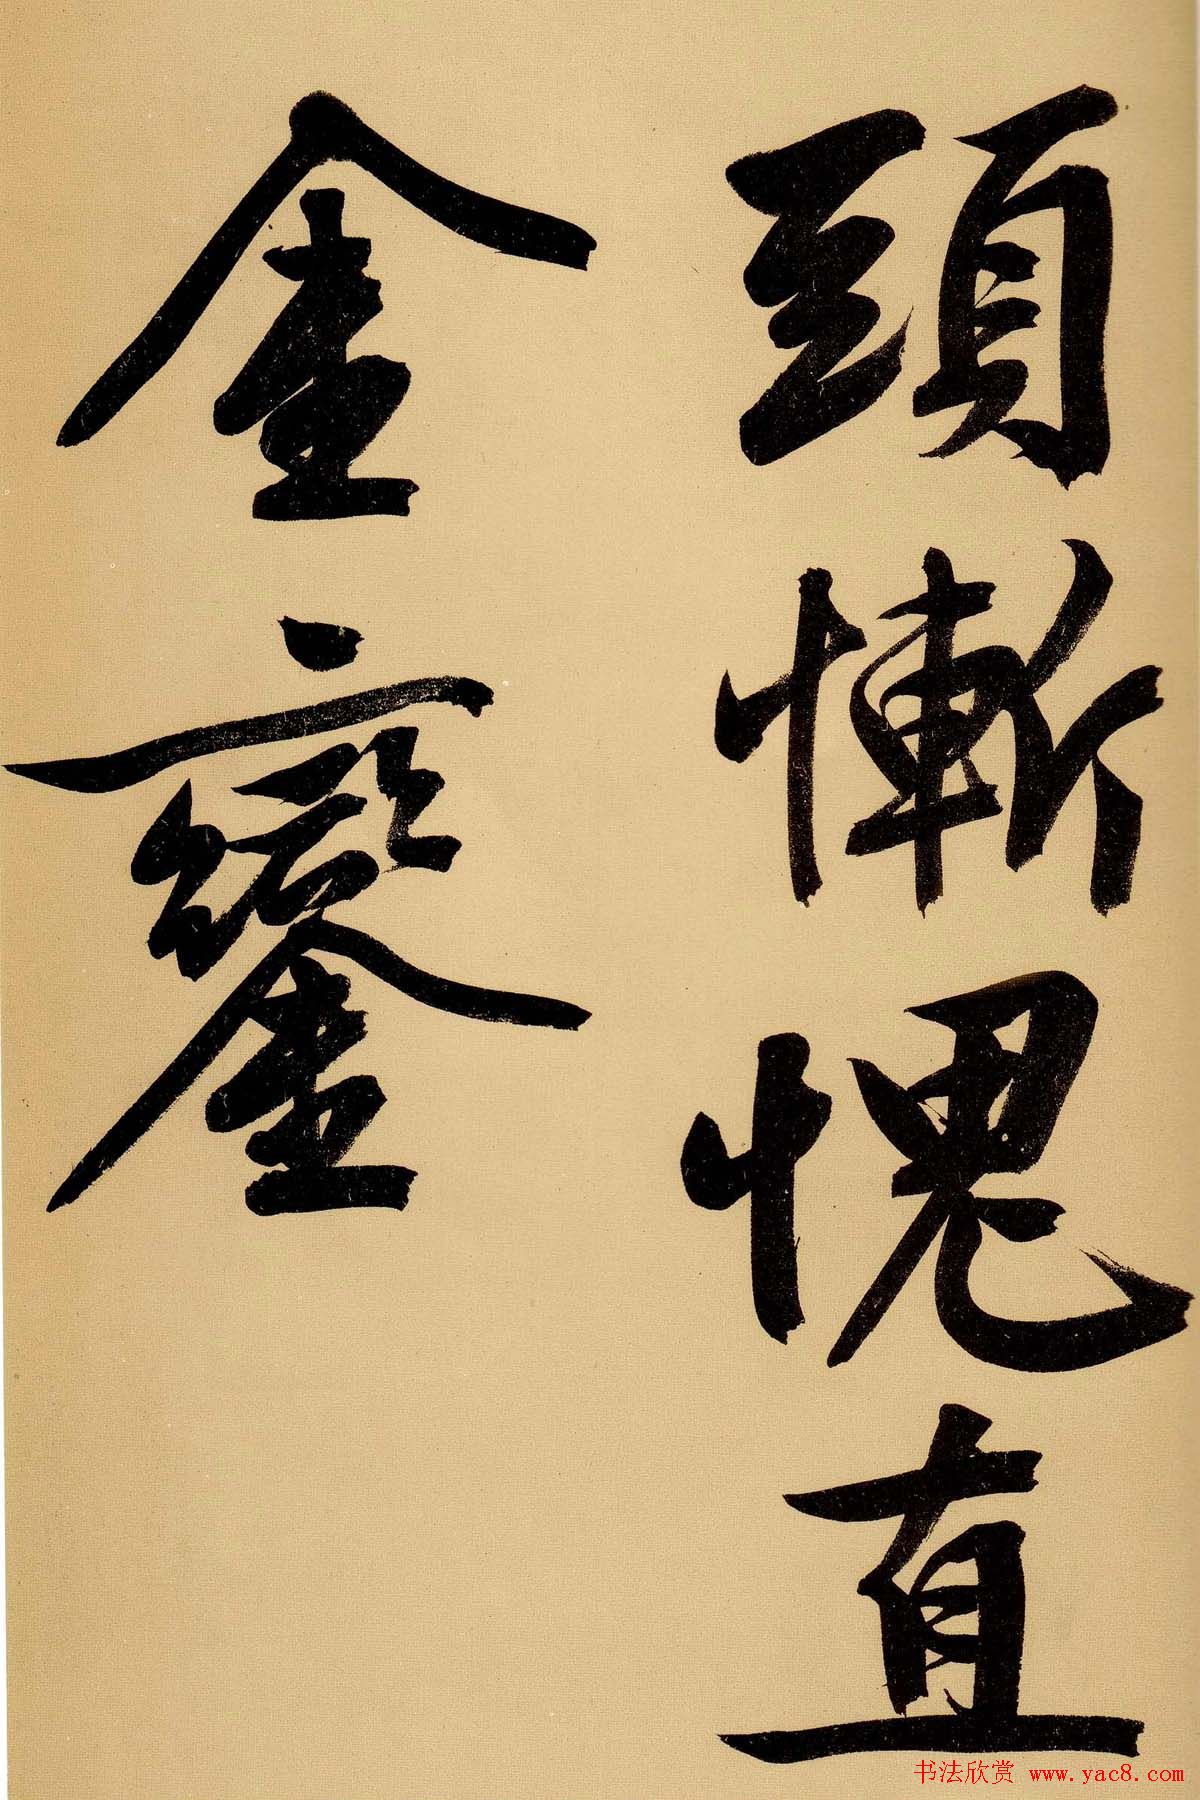 頭慚愧直
金鑾
书法欣赏 www.yac8.com